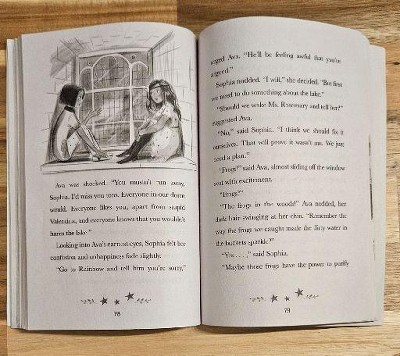 Ava was shocked. "You mustn't run away,
Sophia. I'd miss you tons. Everyone in our dorm
would. Everyone likes you, apart from stupid
Valentina, and everyone knows that you wouldn't
harm the lake."
Looking into Ava's earnest eyes, Sophia felt her
confusion and unhappiness fade slightly.
"Go to Rainbow and tell him you're sorry,"
78
urged Ava. "He'll be feeling awful that you've
argued."
Sophia nodded. "I will," she decided. "But first
we need to do something about the lake."
"Should we wake Ms. Rosemary and tell her?"
suggested Ava.
"No," said Sophia. "I think we should fix it
ourselves. That will prove it wasn't us. We just
need a plan."
"Frogs!" said Ava, almost sliding off the window
seat with excitement.
"Frogs?"
"The frogs in the woods!" Ava nodded, her
dark hair swinging at her chin. "Remember the
way the frogs we caught made the dirty water in
the buckets sparkle?"
"Yes . . . ," said Sophia.
"Maybe those frogs have the power to purify
79